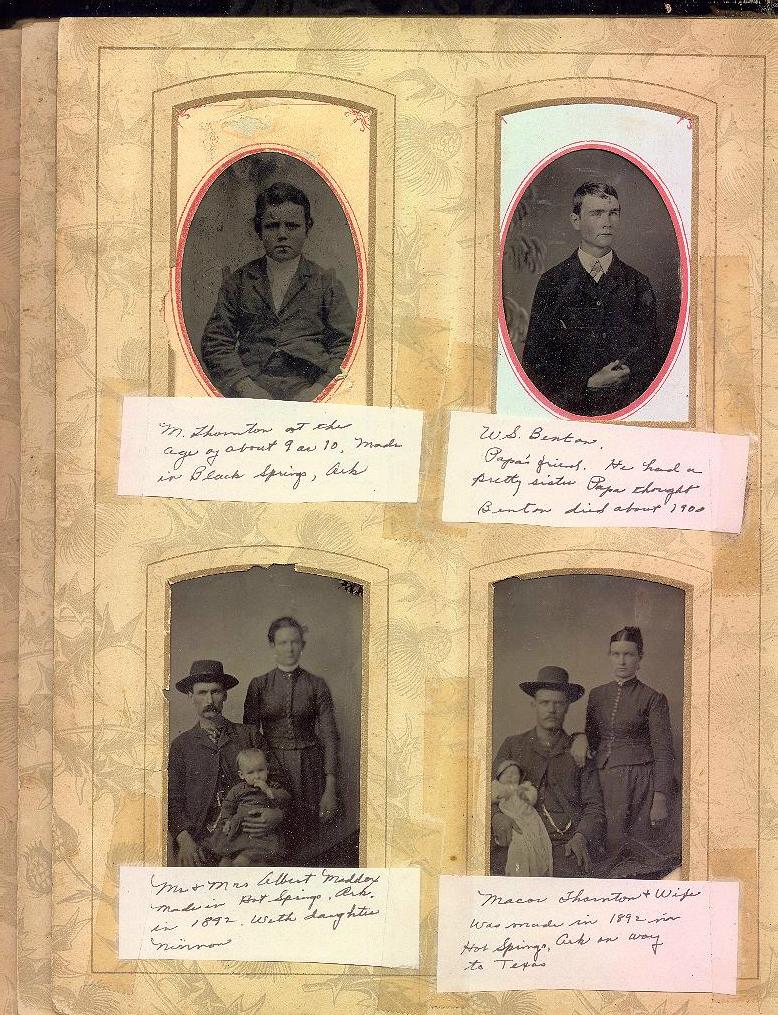 M. Thornton at the
age of about 9 or 10, Made
in Black Springs, Ark
W.S. Benton.
Papa's friend. He had a
pretty sister Papa thought
Benton died about 1900
Mr & Mrs Albert Maddox
made in Hot Springs, Ark.
in 1892. With daughter
Macon Thornton & Wife
Was made in 1892 in
Hot Springs, Ark on way
to Texas